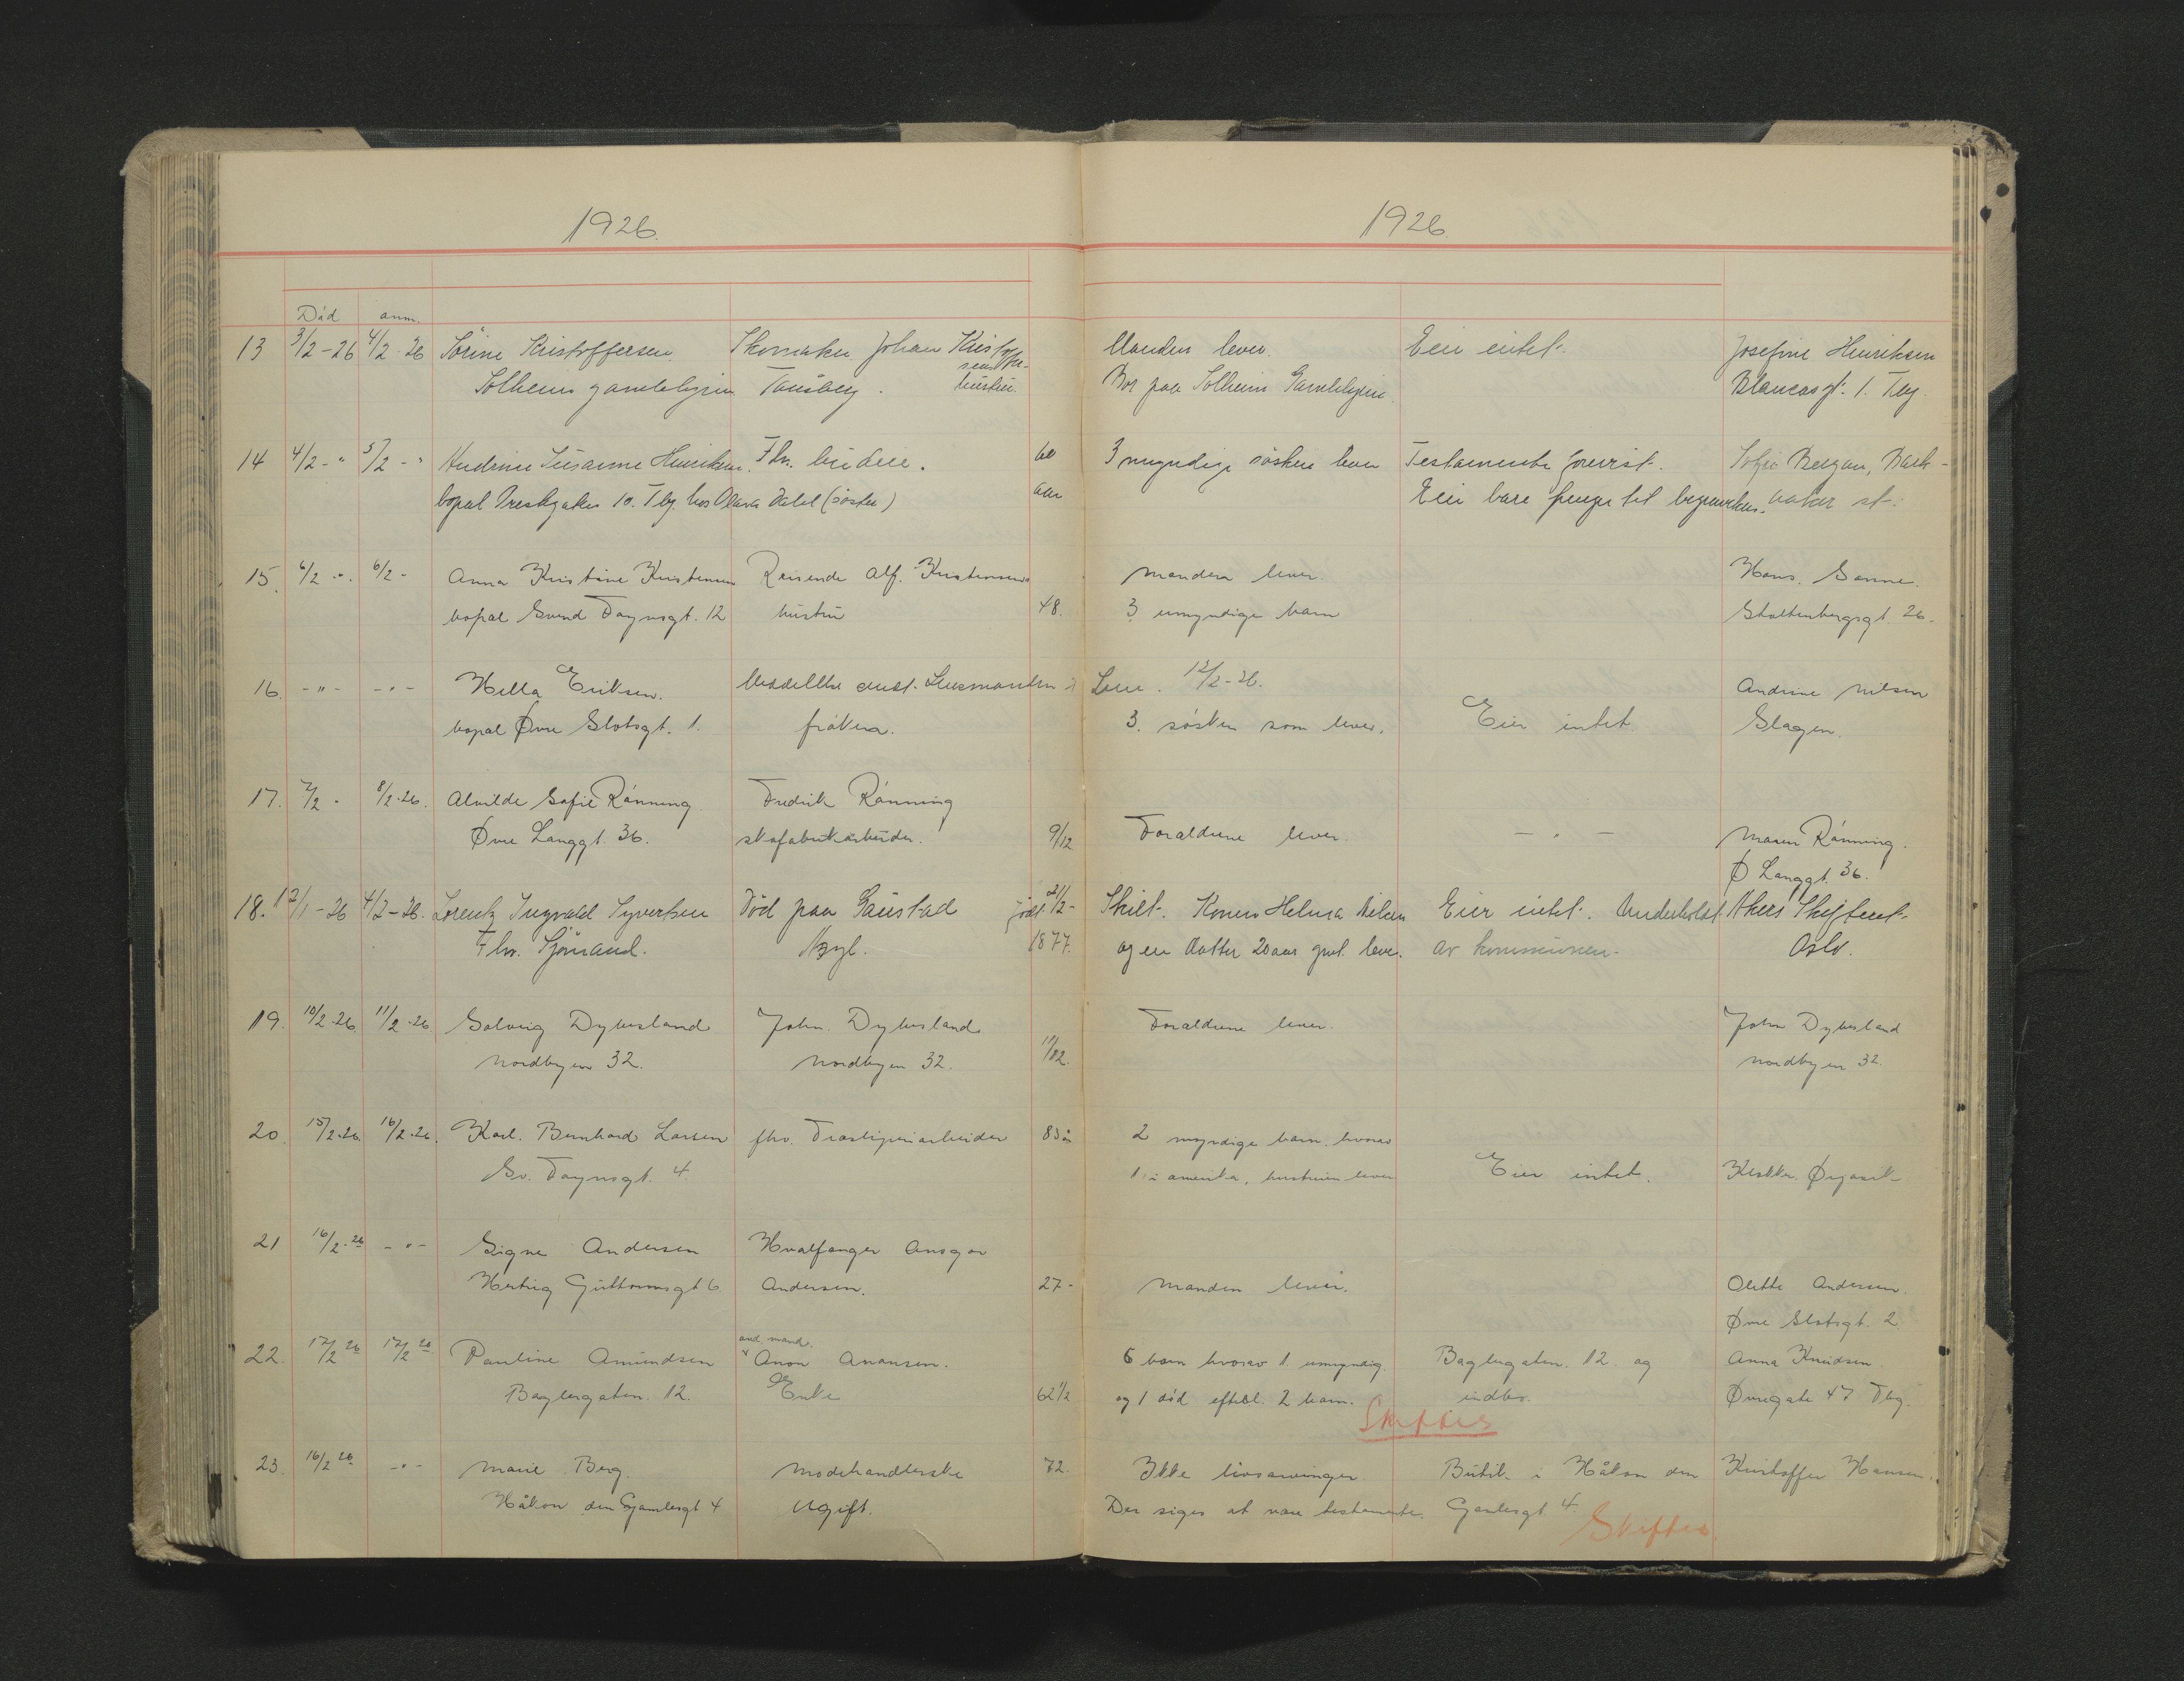 1926.
1926
Död anm.
13 3/2-26 4/2-26 Sörine Kristoffersen Skomaker Johan Kristoffer- Manden lever. Eier intet. Josefine Henriksen
sens
Solheim gamlebyen Tønsberg. hustru. Bor paa Solheim Gamlebyen. Blancasgt. 1. Tbg.
14 4/2-" 5/2-" Andrine Susanne Henriksen. Fhv. budeie. 60 3 myndige søsken lever Testamente forevist. Sofie Bergan, Bark-
bopæl Prestegaten 10. Tbg. hos Olava Dahl (søster) aar Eier bare penge til begravelsen. aaker st.
15. 6/2 -"- 6/2 - Anna Kristine Kristensen Reisende Alf. Kristensens manden lever. Hans. Sanne.
bopæl Svend Føynsgt. 12 hustru 48. 3 umyndige barn Stoltenbergsgt. 26.
16. -"- -"- Hella Eriksen. Meddelelse sendt Lensmanden i Seem. 12/2-26. Andrine Nilsen
bopæl Øvre Slotsgt. 1. frøken. 3. søsken som lever. Eier intet Slagen.
17. 7/2 - 8/2-26. Alvilde Sofie Rönning Fredrik Rönning
Øvre Langgt. 36. skofabrikarbeider. 9/12 Forældrene lever. - " - Maren Rönning.
Ø Langgt. 36.
18. 12/1-26 4/2-26. Lorentz Ingvald Syvertsen Död paa Gaustad født 2/2- Skilt. Konen Helma Nilsen Eier intet. Underholdt Akers Skifterett
Fhv. Sjömand. Asyl. 1877. og en datter 20 aar gml. lever. av kommunen. Oslo.
19. 10/2-26 11/2-26 Solveig Dybesland John. Dybesland Forældrene lever. John Dybesland
Nordbyen 32. Nordbyen 32. 11/12. Nordbyen 32.
20. 15/2-26. 16/2-26. Karl. Bernhard Larsen fhv. Tranbrenniarbeider 83 år 2 myndige barn. hvorav
Sv. Føynsgt. 4. 1 i amerika, hustruen lever Eier intet.
21 16/2-26 -"- Signe Andersen Hvalfanger Ansgar
Hertug Guttormsgt 6 Andersen. 27- Manden lever. Olette Andersen.
Øvre Slotsgt. 2.
22. 17/2 26 17/2 26 Pauline Amundsen Anon Anonsen. 6 barn hvorav 1. umyndig. Baglergaten. 12. og Anna Knudsen.
Baglergaten. 12. Enke 62 1/2 og 1 død efterl. 2 barn. indbo. Øvregate 47 Tbg.
Skiftes
23. 16/2 26 -"- Marie Berg. Modehandlerske 72. Ikke livsarvinger. Butik i Håkon den Kristoffer Hansen.
Håkon den Gamlesgt 4 Ugift. Der siges at være testamente. Gamlesgt 4.
Skiftes